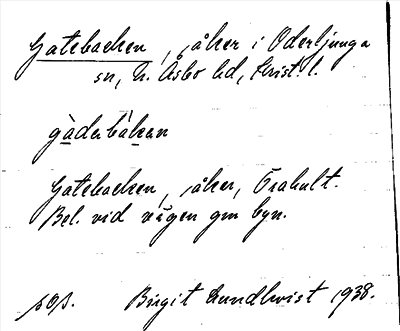 Gatebacken, åker i Oderljunga
sn, N. Åsbo hd, Krist. l.
gàdəbákan
Gatebacken, åker, Örahult.
Bel. vid vägen gm byn.
Birgit Lundkvist 1938.